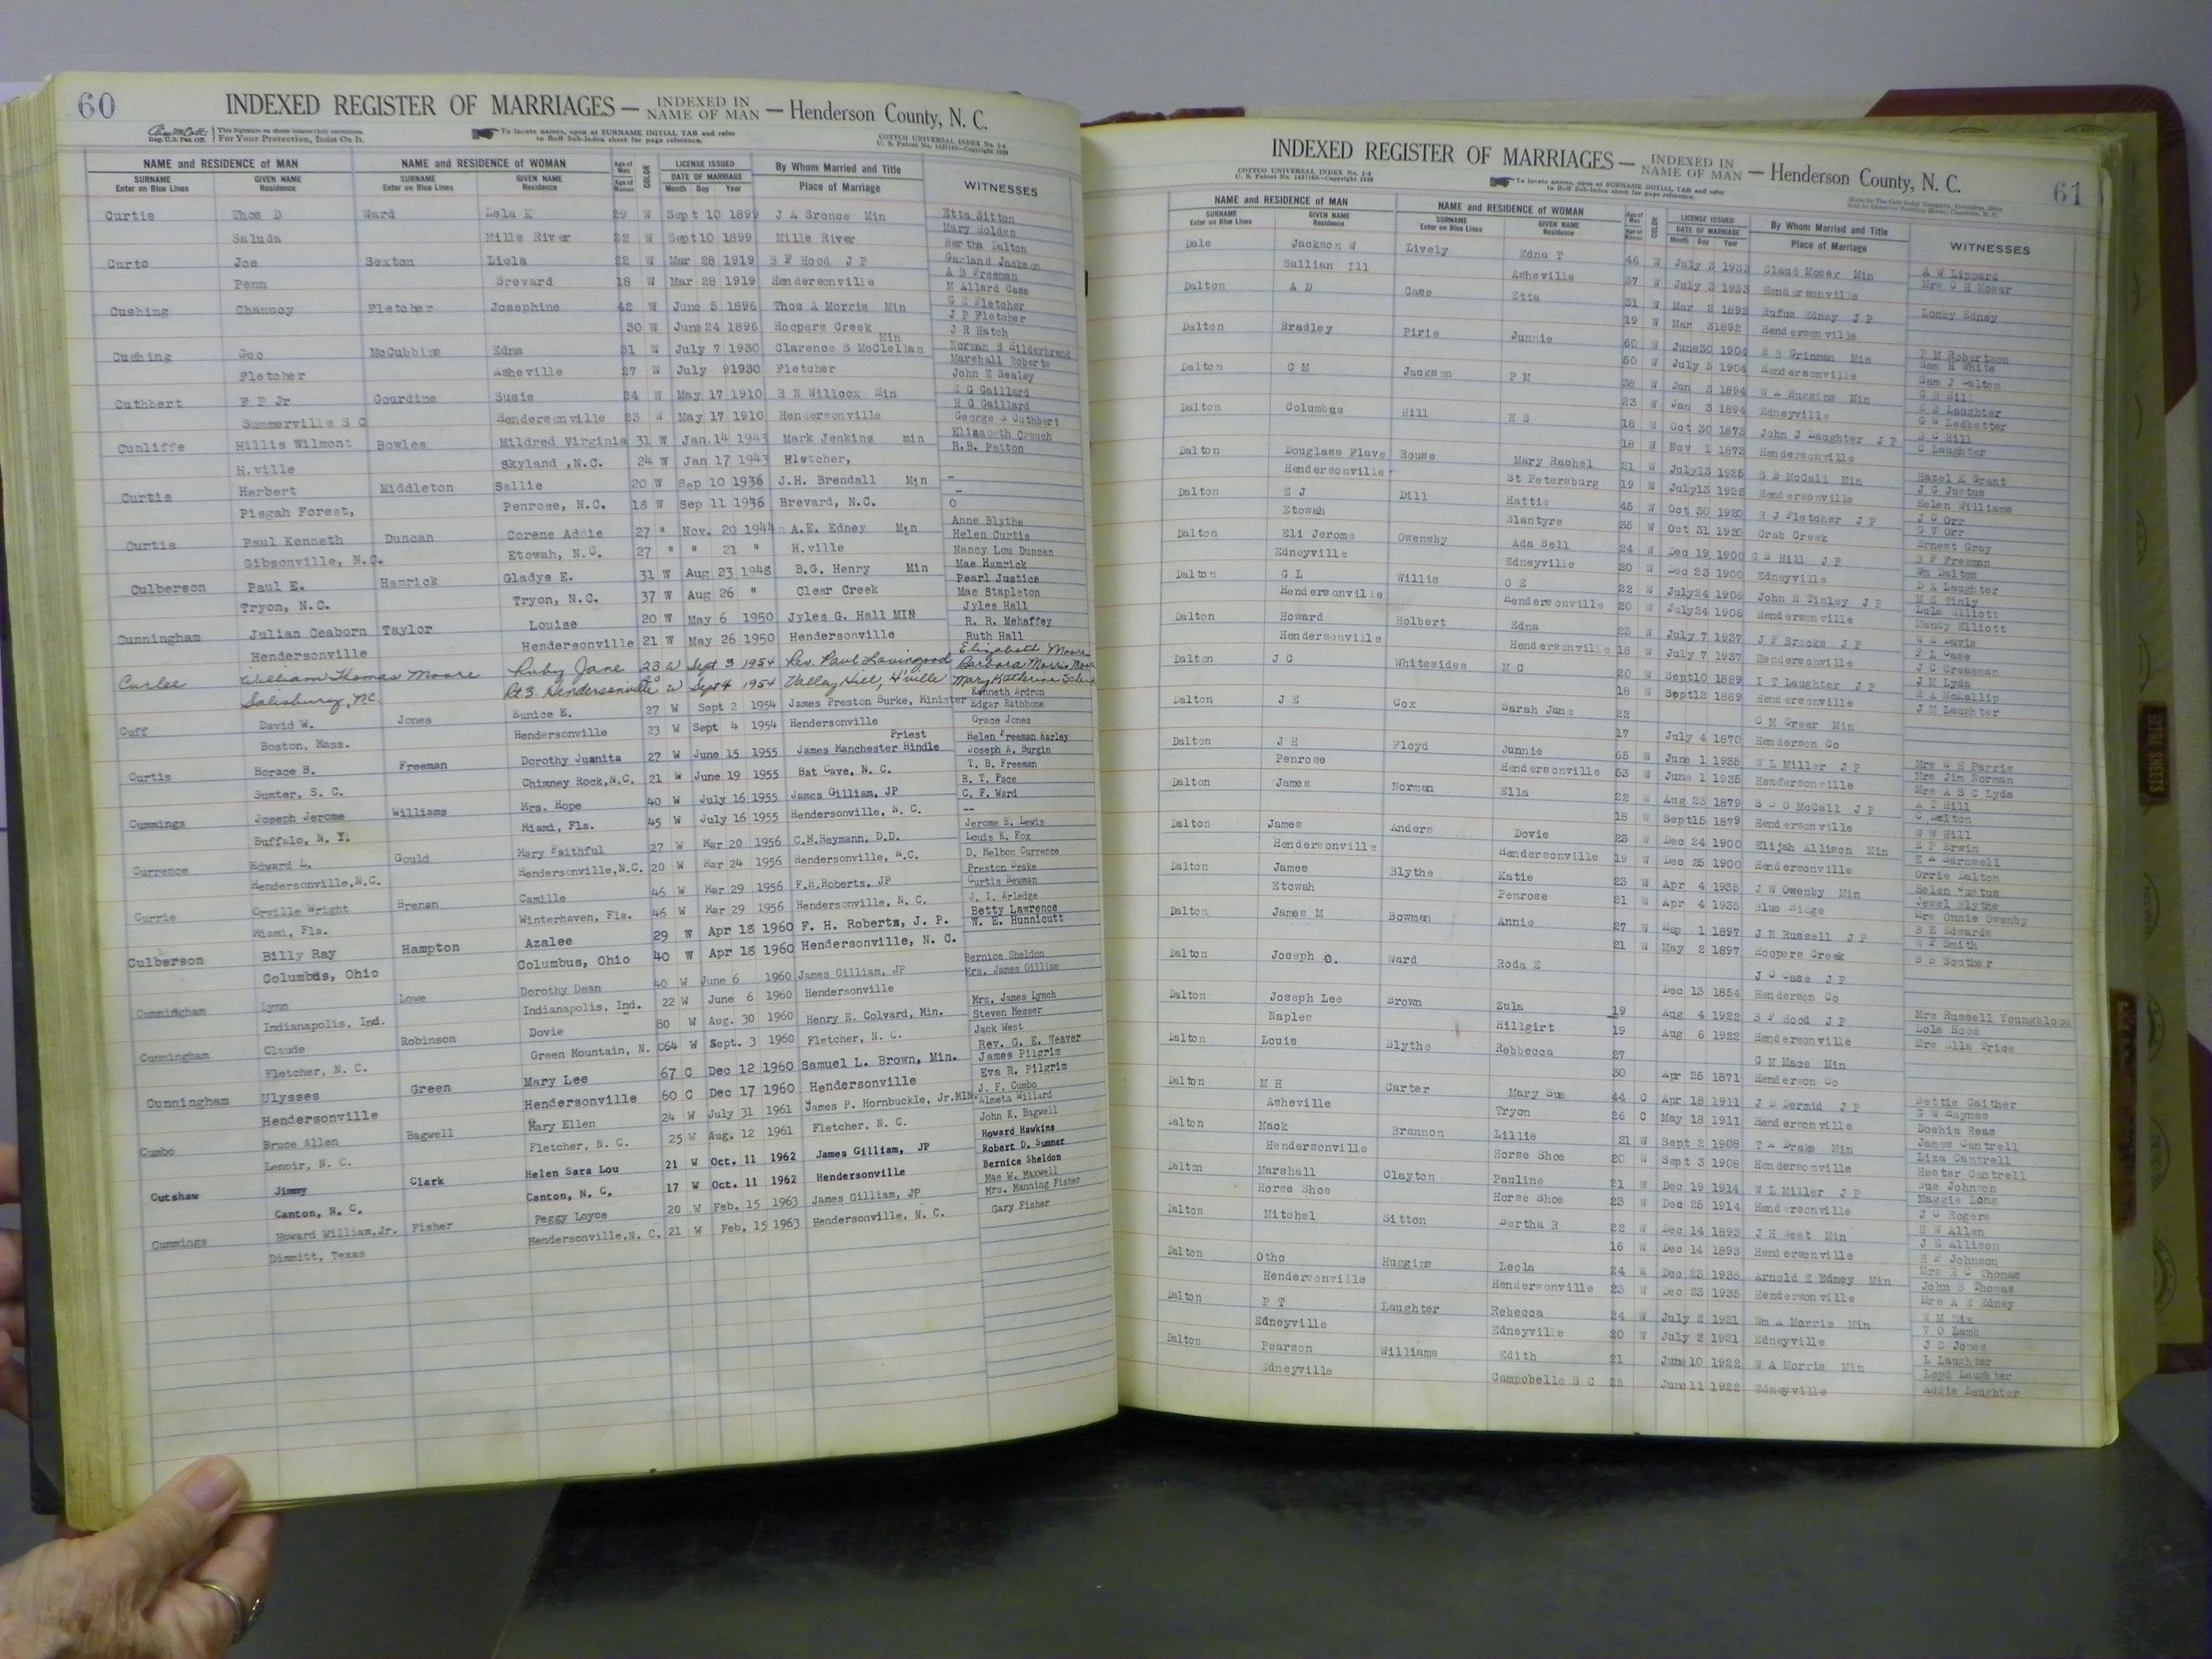 60
INDEXED REGISTER OF MARRIAGES — INDEXED IN NAME OF MAN — Henderson County, N. C.
This Signature on sheets insures their correctness.
Reg. U.S. Pat. Off. For Your Protection, Insist On It.
To locate names, open at SURNAME INITIAL TAB and refer
to Buff Sub-Index sheet for page reference.
COTTCO UNIVERSAL INDEX No. 1-4
NAME and RESIDENCE OF MAN NAME and RESIDENCE OF WOMAN Age of Man COLOR LICENSE ISSUED By Whom Married and Title WITNESSES
SURNAME Enter on Blue Lines GIVEN NAME Residence SURNAME Enter on Blue Lines GIVEN NAME Residence Age of Woman DATE OF MARRIAGE Month Day Year Place of Marriage
Curtis Thos D Ward Lela K 29 W Sept 10 1899 J A Bronce Min Etta Sitton
Mary Holden
Saluda Mills River 22 W Sept10 1899 Mills River Bertha Dalton
Curto Joe Sexton Liela 22 W Mar 28 1919 S F Hood J P Garland Jackson
A B Freeman
Penn Brevard 18 W Mar 28 1919 Hendersonville M Allard Case
Cushing Chanucy Fletcher Josephine 42 W June 5 1896 Thos A Morris Min G E Fletcher
J P Fletcher
30 W June 24 1896 Hoopers Creek J R Hatch
Cushing Geo McCubbins Edna 31 W July 7 1930 Clarence S McClellan Min Norman S Hilderbrand
Marshall Roberts
Fletcher Asheville 27 W July 91930 Fletcher John E Sealey
Cuthbert F P Jr Gourdine Susie 24 W May 17 1910 R N Willcox Min E G Gaillard
H G Gaillard
Summerville S C Hendersonville 23 W May 17 1910 Hendersonville George S Cuthbert
Cunliffe Hillis Wilmont Bowles Mildred Virginia 31 W Jan.14 1943 Mark Jenkins min Elizabeth Crouch
R.B. Patton
H.ville Skyland ,N.C. 24 W Jan 17 1943 Fletcher,
Curtis Herbert Middleton Sallie 20 W Sep 10 1936 J.H. Brendall Min —
—
Pisgah Forest, Penrose, N.C. 18 W Sep 11 1936 Brevard, N.C. O
Curtis Paul Kenneth Duncan Corene Addie 27 " Nov. 20 1944 A.E. Edney Min Anne Blythe
Helen Curtis
Gibsonville, N.C. Etowah, N.C. 27 " " 21 " H.ville Nancy Lou Duncan
Culberson Paul E. Hamrick Gladys E. 31 W Aug 23 1948 B.G. Henry Min Mae Hamrick
Pearl Justice
Tryon, N.C. Tryon, N.C. 37 W Aug 26 " Clear Creek Mae Stapleton
Cunningham Julian Ceaborn Taylor Louise 20 W May 6 1950 Jyles G. Hall MIN Jyles Hall
R. R. Mehaffey
Hendersonville Hendersonville 21 W May 26 1950 Hendersonville Ruth Hall
Curlee William Thomas Moore Ruby Jane 23 W Sept 3 1954 Rev. Paul Lovingood Elizabeth Moore
Barbara Morris Moore
Salisbury, N.C. Rt 3. Hendersonville W Sept 4 1954 Valley Hill, H'ville Mary Katherine
Cuff David W. Jones Eunice E. 27 W Sept 2 1954 James Preston Burke, Minister Kenneth Ardron
Edgar Rathbone
Boston, Mass. Hendersonville 23 W Sept 4 1954 Hendersonville Grace Jones
Curtis Horace B. Freeman Dorothy Juanita 27 W June 15 1955 James Manchester Hindle Priest Helen Freeman Earley
Joseph A. Burgin
Sumter, S. C. Chimney Rock,N.C. 21 W June 19 1955 Bat Cave, N. C. T. B. Freeman
Cummings Joseph Jerome Williams Mrs. Hope 40 W July 16 1955 James Gilliam, JP R. T. Pace
C. F. Ward
Buffalo, N. Y. Miami, Fla. 45 W July 16 1955 Hendersonville, N. C. --
Currence Edward L. Gould Mary Faithful 27 W Mar 20 1956 C.M.Heymann, D.D. Jerome E. Lewis
Louis K. Fox
Hendersonville,N.C. Hendersonville,N.C. 20 W Mar 24 1956 Hendersonville, N.C. D. Melbon Currence
Currie Orville Wright Brenan Camille 46 W Mar 29 1956 F.H.Roberts, JP Preston Drake
Curtis Newman
Miami, Fla. Winterhaven, Fla. 46 W Mar 29 1956 Hendersonville, N. C. J. I. Arledge
Culberson Billy Ray Hampton Azalee 29 W Apr 18 1960 F. H. Roberts, J. P. Betty Lawrence
W. E. Hunnicutt
Columbus, Ohio Columbus, Ohio 40 W Apr 18 1960 Hendersonville, N. C.
Cunningham Lynn Lowe Dorothy Dean 40 W June 6 1960 James Gilliam, JP Bernice Sheldon
Mrs. James Gilliam
Indianapolis, Ind. Indianapolis, Ind. 22 W June 6 1960 Hendersonville
Cunningham Claude Robinson Dovie 80 W Aug. 30 1960 Henry E. Colvard, Min. Mrs. James Lynch
Steven Messer
Fletcher, N. C. Green Mountain, N. C 64 W Sept. 3 1960 Fletcher, N. C. Jack West
Cunningham Ulysses Green Mary Lee 67 C Dec 12 1960 Samuel L. Brown, Min. Rev. G. E. Weaver
James Pilgrim
Hendersonville Hendersonville 60 C Dec 17 1960 Hendersonville Eva R. Pilgrim
Cumbo Bruce Allen Bagwell Mary Ellen 24 W July 31 1961 James P. Hornbuckle, Jr.MIN. J. F. Cumbo
Almeta Willard
Lenoir, N. C. Fletcher, N. C. 25 W Aug. 12 1961 Fletcher, N. C. John K. Bagwell
Cutshaw Jimmy Clark Helen Sara Lou 21 W Oct. 11 1962 James Gilliam, JP Howard Hawkins
Robert D. Sumner
Canton, N. C. Canton, N. C. 17 W Oct. 11 1962 Hendersonville Bernice Sheldon
Cummings Howard William,Jr. Fisher Peggy Loyce 20 W Feb. 15 1963 James Gilliam, JP Mae W. Maxwell
Mrs. Manning Fisher
Dimmitt, Texas Hendersonville,N. C. 21 W Feb. 15 1963 Hendersonville, N. C. Gary Fisher
INDEXED REGISTER OF MARRIAGES — INDEXED IN NAME OF MAN — Henderson County, N. C.
61
COTTCO UNIVERSAL INDEX No. 1-4
To locate names, open at SURNAME INITIAL TAB and refer
to Buff Sub-Index sheet for page reference.
NAME and RESIDENCE OF MAN NAME and RESIDENCE OF WOMAN Age of Man COLOR LICENSE ISSUED By Whom Married and Title WITNESSES
SURNAME Enter on Blue Lines GIVEN NAME Residence SURNAME Enter on Blue Lines GIVEN NAME Residence Age of Woman DATE OF MARRIAGE Month Day Year Place of Marriage
Dale Jackson W Lively Edna T 46 W July 3 1933 Claud Moser Min A W Lippard
Mrs C H Moser
Sullian Ill Asheville 37 W July 3 1933 Hendersonville
Dalton A D Case Etta 31 W Mar 2 1892 Rufus Edney J P Lomby Edney
19 W Mar 31892 Hendersonville
Dalton Bradley Pirie Junnie 60 W June30 1904 H B Grinman Min P M Robertson
Sam H White
50 W July 5 1904 Hendersonville Sam J Dalton
Dalton C M Jackson P M 38 W Jan 3 1894 W A Huggins Min G B Hill
E B Laughter
23 W Jan 3 1894 Edneyville G W Ledbetter
Dalton Columbus Hill H S 18 W Oct 30 1873 John J Laughter J P B C Hill
C Laughter
18 W Nov 1 1873 Hendersonville
Dalton Douglass Flave Rouse Mary Rachel 21 W July13 1925 S B McCall Min Hazel K Grant
J G Justus
Hendersonville St Petersburg 19 W July13 1925 Hendersonville Helen Williams
Dalton E J Dill Hattie 45 W Oct 30 1920 R J Fletcher J P J C Orr
G V Orr
Etowah Blantyre 35 W Oct 31 1920 Crab Creek Ernest Gray
Dalton Eli Jerome Owensby Ada Bell 24 W Dec 19 1900 G B Hill J P B F Freeman
Wm Dalton
Edneyville Edneyville 20 W Dec 23 1900 Edneyville D A Laughter
Dalton G L Willis O E 22 W July24 1906 John H Tinley J P M E Tinly
Lula Elliott
Hendersonville Hendersonville 20 W July24 1906 Hendersonville Mandy Elliott
Dalton Howard Holbert Edna 23 W July 7 1937 J F Brooks J P W E Davis
F L Case
Hendersonville Hendersonville 18 W July 7 1937 Hendersonville J C Creasman
Dalton J C Whitesides M C 20 W Sept10 1889 I T Laughter J P J M Lyda
R A McKallip
18 W Sept12 1889 Hendersonville J M Laughter
Dalton J E Cox Sarah Jane 22 C M Greer Min
17 July 4 1870 Henderson Co
Dalton J H Floyd Junnie 65 W June 1 1935 W L Miller J P Mrs W H Parris
Mrs Jim Norman
Penrose Hendersonville 53 W June 1 1935 Hendersonville Mrs A S C Lyda
Dalton James Norman Ella 22 W Aug 23 1879 S D O McCall J P A T Hill
C Dalton
18 W Sept15 1879 Hendersonville W W Hill
Dalton James Anders Dovie 23 W Dec 24 1900 Elijah Allison Min E P Erwin
E A Barnwell
Hendersonville Hendersonville 19 W Dec 25 1900 Hendersonville Orrie Dalton
Dalton James Blythe Katie 23 W Apr 4 1935 J W Owenby Min Helen Justus
Jewel Blythe
Etowah Penrose 21 W Apr 4 1935 Blue Ridge Mrs Onnie Owenby
Dalton James M Bowman Annie 27 W May 1 1897 J N Russell J P B E Edwards
W P Smith
21 W May 2 1897 Hoopers Creek B B Souther
Dalton Joseph O. Ward Roda E J C Case J P
Dec 13 1854 Henderson Co
Dalton Joseph Lee Brown Zula 19 Aug 4 1922 B F Hood J P Mrs Russell Youngblood
Lola Hood
Naples Hillgirt 19 Aug 6 1922 Hendersonville Mrs Ella Trice
Dalton Louis Blythe Rebbecca 27 G M Mace Min
30 Apr 25 1871 Henderson Co
Dalton M H Carter Mary Sue 44 C Apr 18 1911 J D Dermid J P Bettie Gaither
G W Haynes
Asheville Tryon 26 C May 18 1911 Hendersonville Doshia Reas
Dalton Mack Brannon Lillie 21 W Sept 2 1908 T A Drake Min James Cantrell
Liza Cantrell
Hendersonville Horse Shoe 20 W Sept 3 1908 Hendersonville Hester Cantrell
Dalton Marshall Clayton Pauline 21 W Dec 19 1914 W L Miller J P Sue Johnson
Maggie Long
Horse Shoe Horse Shoe 23 W Dec 25 1914 Hendersonville J C Rogers
Dalton Mitchel Sitton Bertha R 22 W Dec 14 1893 J H West Min H W Allen
J E Allison
16 W Dec 14 1893 Hendersonville H F Johnson
Dalton Otho Huggins Leola 24 W Dec 23 1935 Arnold E Edney Min Mrs R C Thomas
John B Thomas
Hendersonville Hendersonville 23 W Dec 23 1935 Hendersonville Mrs A E Edney
Dalton P T Laughter Rebecca 24 W July 2 1921 Wm A Morris Min W M Hix
V O Lamb
Edneyville Edneyville 20 W July 2 1921 Edneyville J C Jones
Dalton Pearson Williams Edith 21 June10 1922 W A Morris Min L Laughter
Loyd Laughter
Edneyville Campobello S C 22 June11 1922 Edneyville Addie Laughter